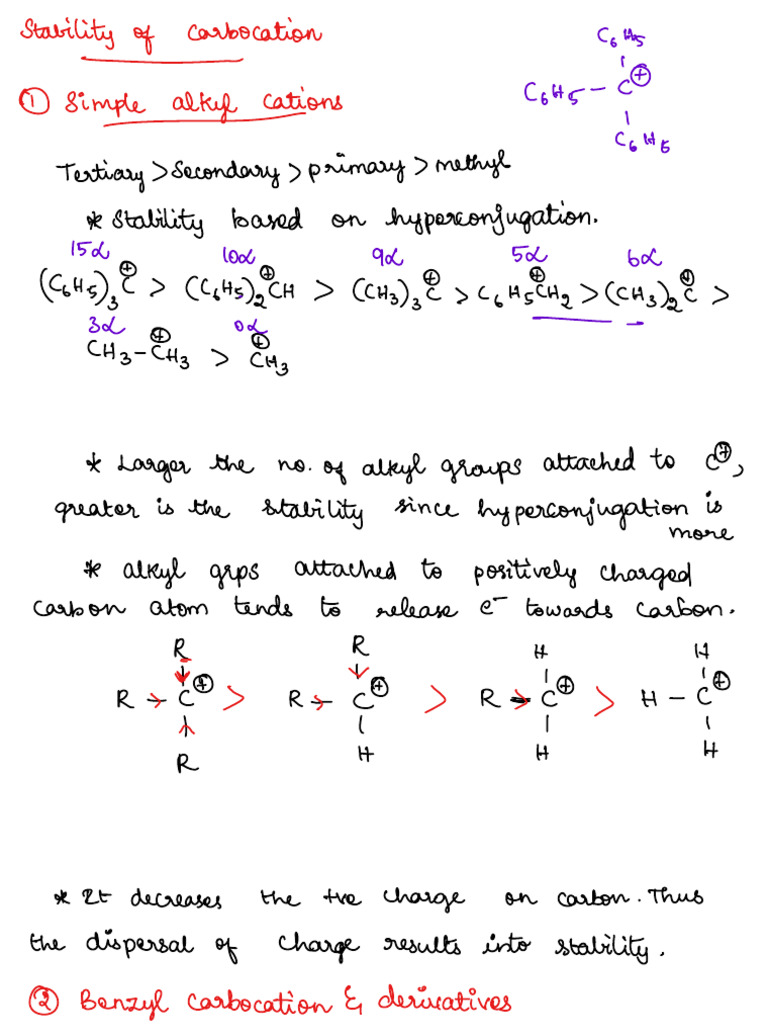 Stability of carbocation
C6H5
C6H5 - C⊕
C6H5
① Simple alkyl cations
Tertiary > Secondary > primary > methyl
* Stability based on hyperconjugation.
15α 10α 9α 5α 6α
(C6H5)3 C⊕ > (C6H5)2 ⊕CH > (CH3)3 C⊕ > C6H5 ⊕CH2 > (CH3)2 C⊕ >
3α 0α
CH3 - ⊕CH3 > ⊕CH3
* Larger the no. of alkyl groups attached to C⊕,
greater is the stability since hyperconjugation is
more
* alkyl grps attached to positively charged
carbon atom tends to release e⁻ towards carbon.
R R H H
R - C⊕ > R - C⊕ > R - C⊕ > H - C⊕
R H H H
* It decreases the +ve charge on carbon. Thus
the dispersal of charge results into stability.
② Benzyl carbocation & derivatives